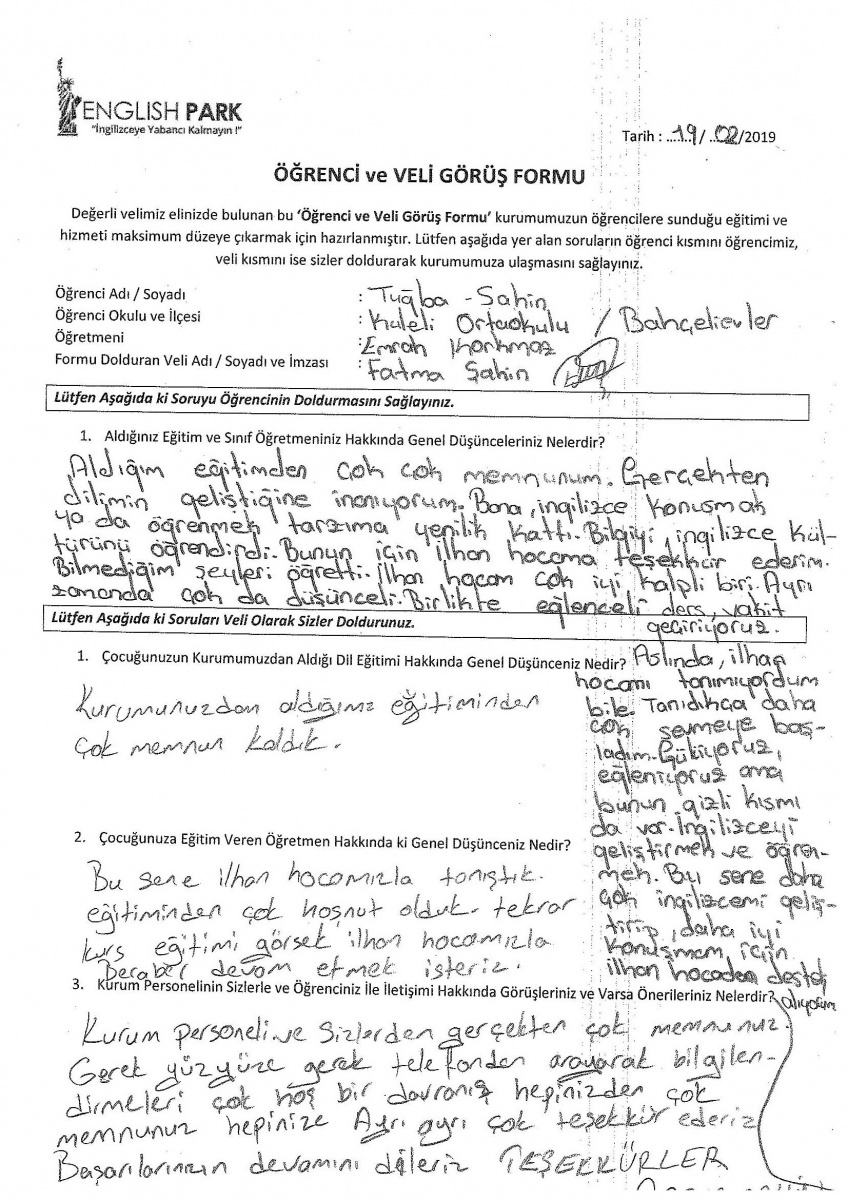 ENGLISH PARK
"İngilizceye Yabancı Kalmayın !"
Tarih : 19/02/2019
ÖĞRENCİ ve VELİ GÖRÜŞ FORMU
Değerli velimiz elinizde bulunan bu 'Öğrenci ve Veli Görüş Formu' kurumumuzun öğrencilere sunduğu eğitimi ve
hizmeti maksimum düzeye çıkarmak için hazırlanmıştır. Lütfen aşağıda yer alan soruların öğrenci kısmını öğrencimiz,
veli kısmını ise sizler doldurarak kurumumuza ulaşmasını sağlayınız.
Öğrenci Adı / Soyadı : Tuğba - Şahin
Öğrenci Okulu ve İlçesi : Kuleli Ortaokulu / Bahçelievler
Öğretmeni : Emrah Korkmaz
Formu Dolduran Veli Adı / Soyadı ve İmzası : Fatma Şahin
Lütfen Aşağıda ki Soruyu Öğrencinin Doldurmasını Sağlayınız.
1. Aldığınız Eğitim ve Sınıf Öğretmeniniz Hakkında Genel Düşünceleriniz Nelerdir?
Aldığım eğitimden çok çok memnunum. Gerçekten
dilimin geliştiğine inanıyorum. Bana, ingilizce konuşmak
ya da öğrenmek tarzıma yenilik kattı. Bilgiyi, ingilizce kül-
türünü öğrendirdi. Bunun için ilhan hocama teşekkür ederim.
Bilmediğim şeyleri öğretti. ilhan hocam çok iyi kalpli biri. Ayrı
zamanda çok da düşünceli. Birlikte eğlenceli ders, vakit
geçiriyoruz.
Aslında, ilhan
hocamı tanımıyordum
bile. Tanıdıkça daha
çok sevmeye baş-
ladım. Gülüyoruz,
eğleniyoruz ama
bunun gizli kısmı
da var. İngilizceyi
geliştirmek ve öğren-
mek. Bu sene daha
çok ingilizcemi geliş-
tirip, daha iyi
konuşmam için
ilhan hocadan destek
alıyorum
Lütfen Aşağıda ki Soruları Veli Olarak Sizler Doldurunuz.
1. Çocuğunuzun Kurumumuzdan Aldığı Dil Eğitimi Hakkında Genel Düşünceniz Nedir?
Kurumunuzdan aldığımız eğitiminden
çok memnun kaldık.
2. Çocuğunuza Eğitim Veren Öğretmen Hakkında ki Genel Düşünceniz Nedir?
Bu sene ilhan hocamızla tanıştık.
eğitiminden çok hoşnut olduk. tekrar
kurs eğitimi görsek ilhan hocamızla
Beraber devam etmek isteriz.
3. Kurum Personelinin Sizlerle ve Öğrenciniz İle İletişimi Hakkında Görüşleriniz ve Varsa Önerileriniz Nelerdir?
Kurum personeli ve Sizlerden gerçekten çok memnunuz.
Gerek yüzyüze gerek telefonden arayarak bilgilen-
dirmeleri çok hoş bir davranış hepinizden çok
memnunuz hepinize Ayrı ayrı çok teşekkür ederiz
Başarılarınızın devamını dileriz TEŞEKKÜRLER